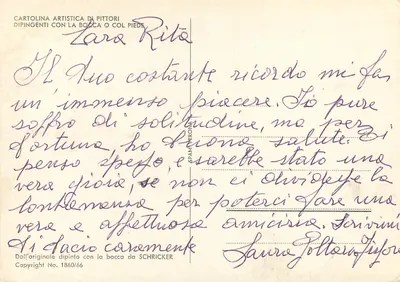 CARTOLINA ARTISTICA DI PITTORI
DIPINGENTI CON LA BOCCA O COL PIEDE
Cara Rita
Il tuo costante ricordo mi fa
un immenso piacere. Io pure
soffro di solitudine, ma per
fortuna, ho buona salute. Ti
penso spesso, e sarebbe stato una
vera gioia, se non ci dividesse la
lontananza per poterci fare una
vera e affettuosa amicizia. Scrivimi
Ti bacio caramente
Laura
Dall'originale dipinto con la bocca da SCHRICKER
Copyright No. 1860/66